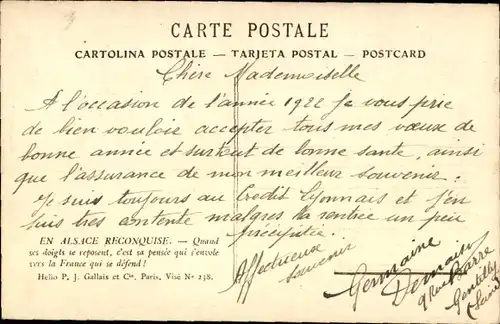 CARTE POSTALE
CARTOLINA POSTALE — TARJETA POSTAL — POSTCARD
Chère Mademoiselle
A l'occasion de l'année 1922 je vous prie
de bien vouloir accepter tous mes vœux de
bonne année et surtout de bonne sante, ainsi
que l'assurance de mon meilleur souvenir.
Je suis toujours au Credit Lyonnais et j'en
suis tres contente malgres la rentrée un peu
précipitée.
EN ALSACE RECONQUISE. — Quand
ses doigts se reposent, c'est sa pensée qui s'envole
vers la France qui se défend !
Helio P. J. Gallais et Cie, Paris, Visé No 238.
Affectueux
souvenir
Germaine
Demain
9 Rue Barre
Gentilly
(Seine)